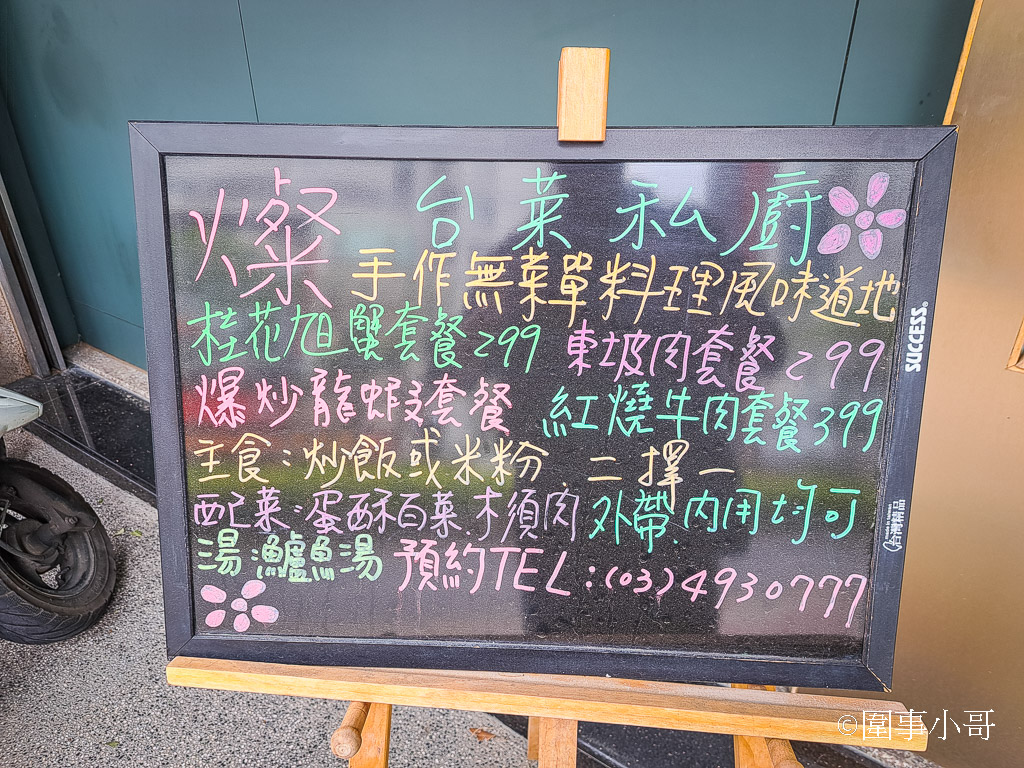 燦 台菜私廚
手作無菜單料理風味道地
桂花旭蟹套餐299 東坡肉套餐299
爆炒龍蝦套餐 紅燒牛肉套餐399
主食:炒飯或米粉 二擇一
配菜:蛋酥白菜.木須肉 外帶.內用均可
湯:鱸魚湯 預約TEL:(03)4930777
SUCCESS®
台灣精品
©圍事小哥